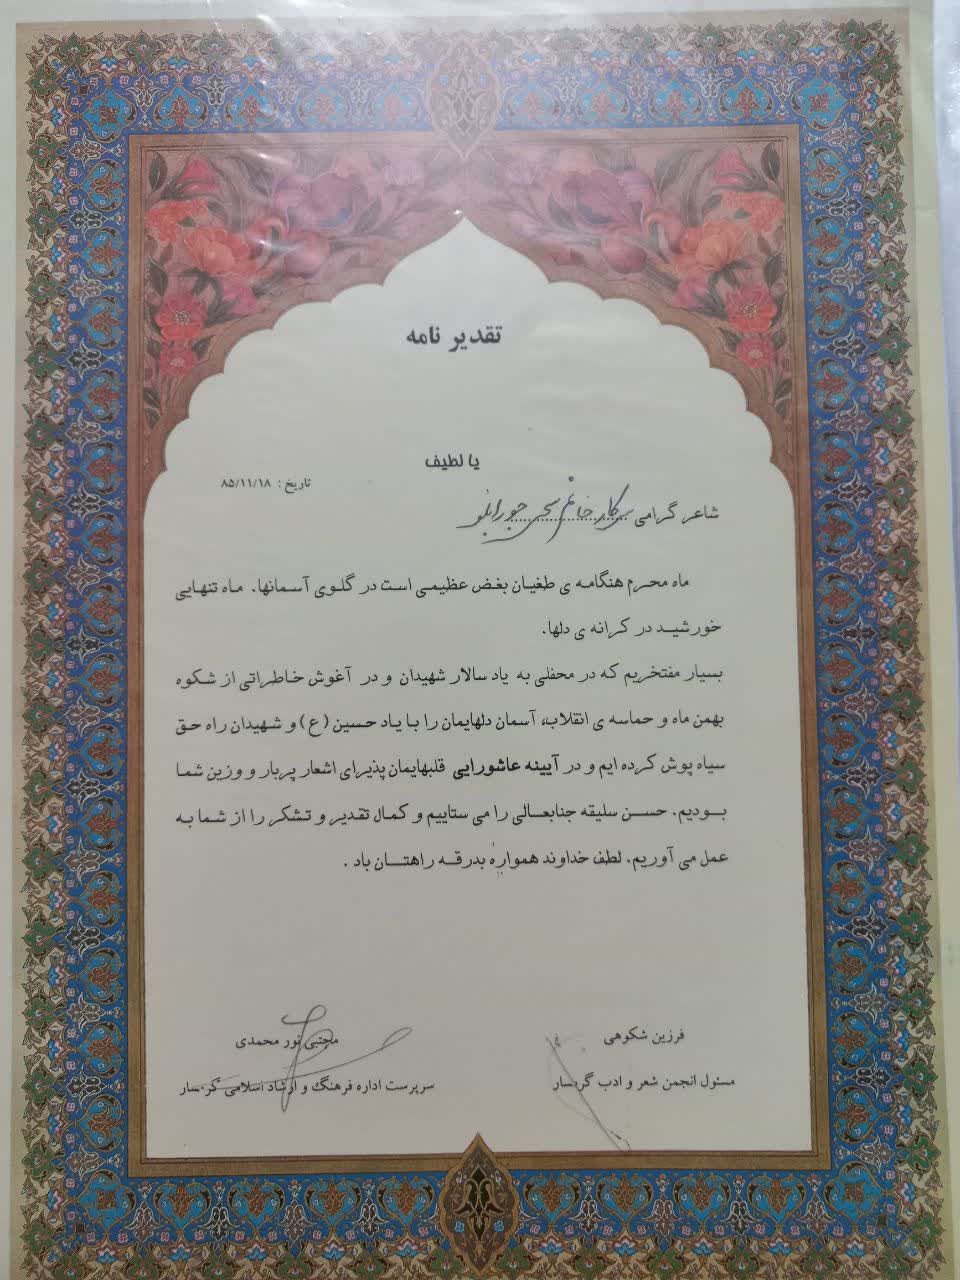 تقدیر نامه
یا لطیف
تاریخ : ۸۵/۱۱/۱۸
شاعر گرامی سرکار خانم
ماه محرم هنگامه ی طغیان بغض عظیمی است در گلوی آسمانها. ماه تنهایی
خورشید در کرانه ی دلها.
بسیار مفتخریم که در محفلی به یاد سالار شهیدان و در آغوش خاطراتی از شکوه
بهمن ماه و حماسه ی انقلاب، آسمان دلهایمان را با یاد حسین (ع) و شهیدان راه حق
سیاه پوش کرده ایم و در آیینه عاشورایی قلبهایمان پذیرای اشعار پربار و وزین شما
بودیم. حسن سلیقه جنابعالی را می ستاییم و کمال تقدیر و تشکر را از شما به
عمل می آوریم. لطف خداوند همواره بدرقه راهتان باد .
فرزین شکوهی
مسئول انجمن شعر و ادب گرمسار
مجتبی نور محمدی
سرپرست اداره فرهنگ و ارشاد اسلامی گرمسار